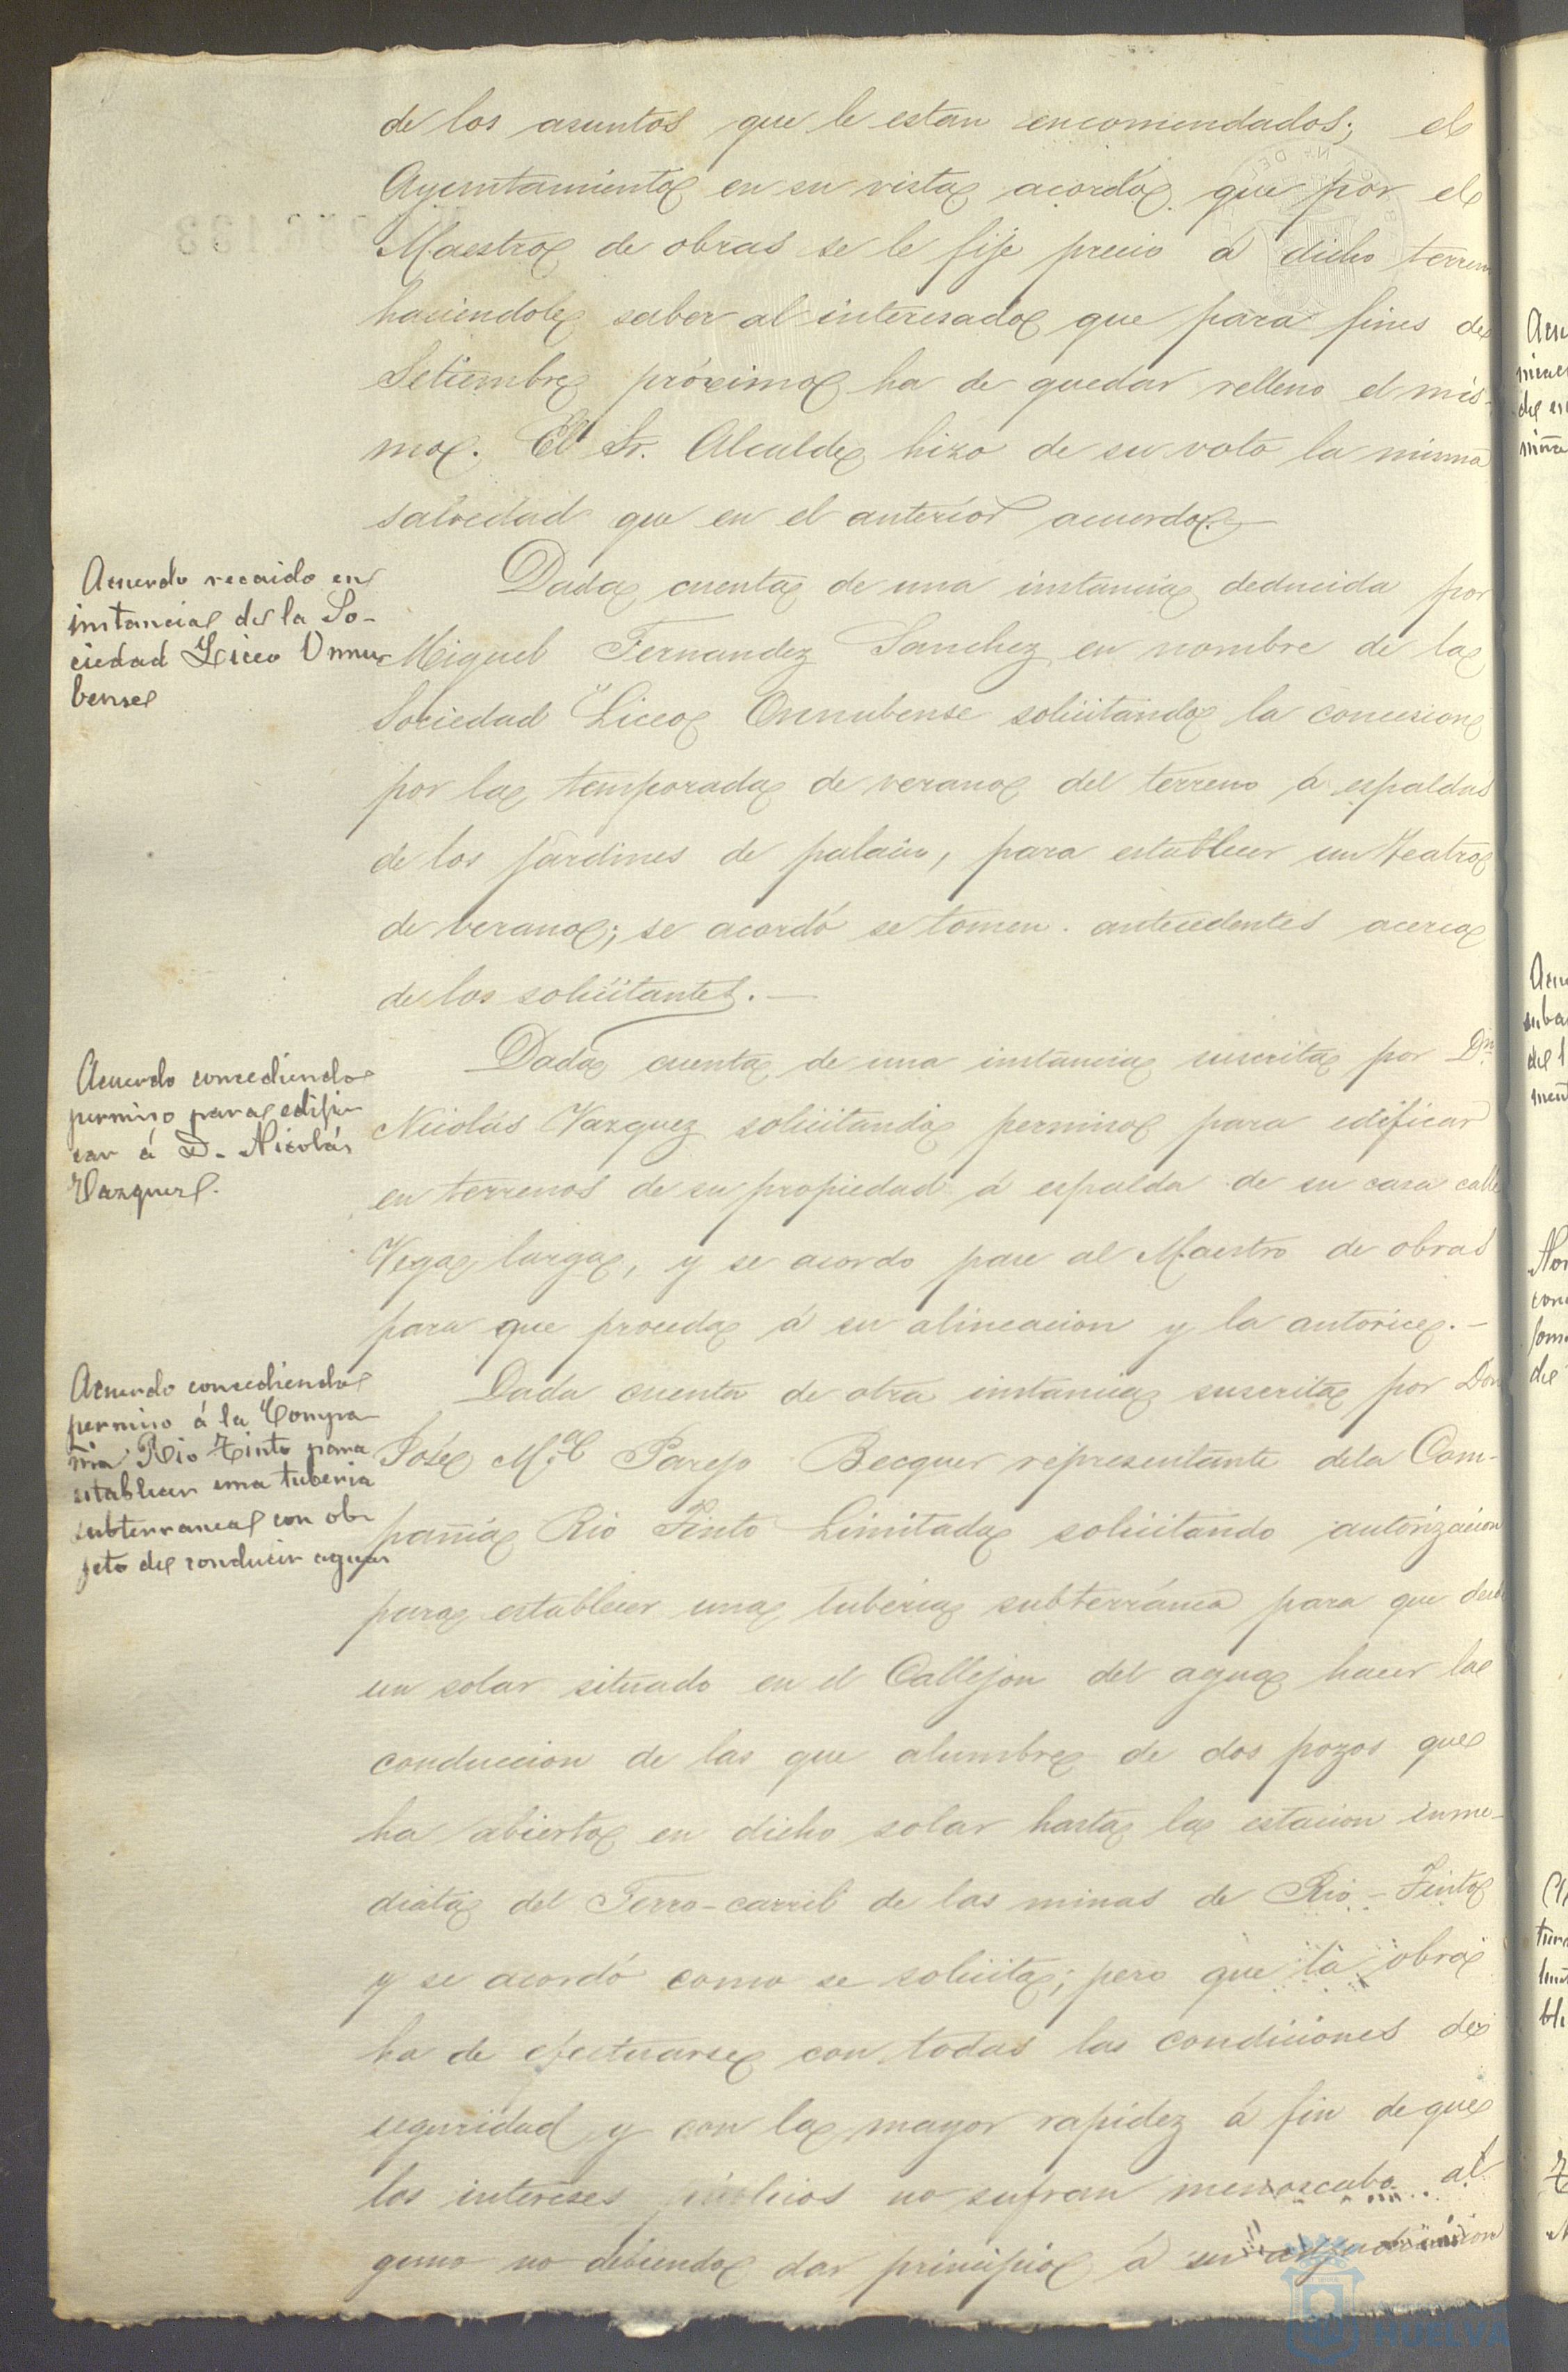 de los asuntos que le estan encomendados; el
Ayuntamiento en su vista acordó que por el
Maestro de obras se le fije precio á dicho terreno
haciendole saber al interesado que para fines de
Setiembre próximo ha de quedar relleno el mis-
mo. El Sr. Alcalde hizo de su voto la misma
salvedad que en el anterior acuerdo.
Acuerdo recaido en
instancia de la So-
ciedad Liceo Onnu-
bense
Dada cuenta de una instancia deducida por
Miguel Fernandez Sanchez en nombre de la
Sociedad "Liceo Onnubense solicitando la concesion
por la temporada de verano del terreno á espaldas
de los jardines de palacio, para establecer un Teatro
de verano; se acordó se tomen antecedentes acerca
de los solicitantes.
Acuerdo concediendo
permiso para edifi-
car á D. Nicolás
Vazquez.
Dada cuenta de una instancia suscrita por Dn
Nicolás Vazquez solicitando permiso para edificar
en terrenos de su propiedad á espalda de su casa calle
Vega larga, y se acordo pase al Maestro de obras
para que proceda á su alineacion y la autorice.
Acuerdo concediendo
permiso á la Compa-
ñia Rio Tinto para
establecer una tuberia
subterranea con ob-
jeto de conducir aguas
Dada cuenta de otra instancia suscrita por Don
José M.ª Parejo Becquer representante dela Com-
pañia Rio Tinto Limitada solicitando autorizacion
para establecer una tuberia subterránea para que desde
un solar situado en el Callejon del agua hacer la
conduccion de las que alumbre de dos pozos que
ha abierto en dicho solar hasta la estacion inme-
diata del Ferro-carril de las minas de Rio-Tinto
y se acordó como se solicita; pero que la obra
ha de efectuarse con todas las condiciones de
seguridad y con la mayor rapidez á fin de que
los intereses públicos no sufran menoscabo al
guno no debiendo dar principio á su
HUELVA